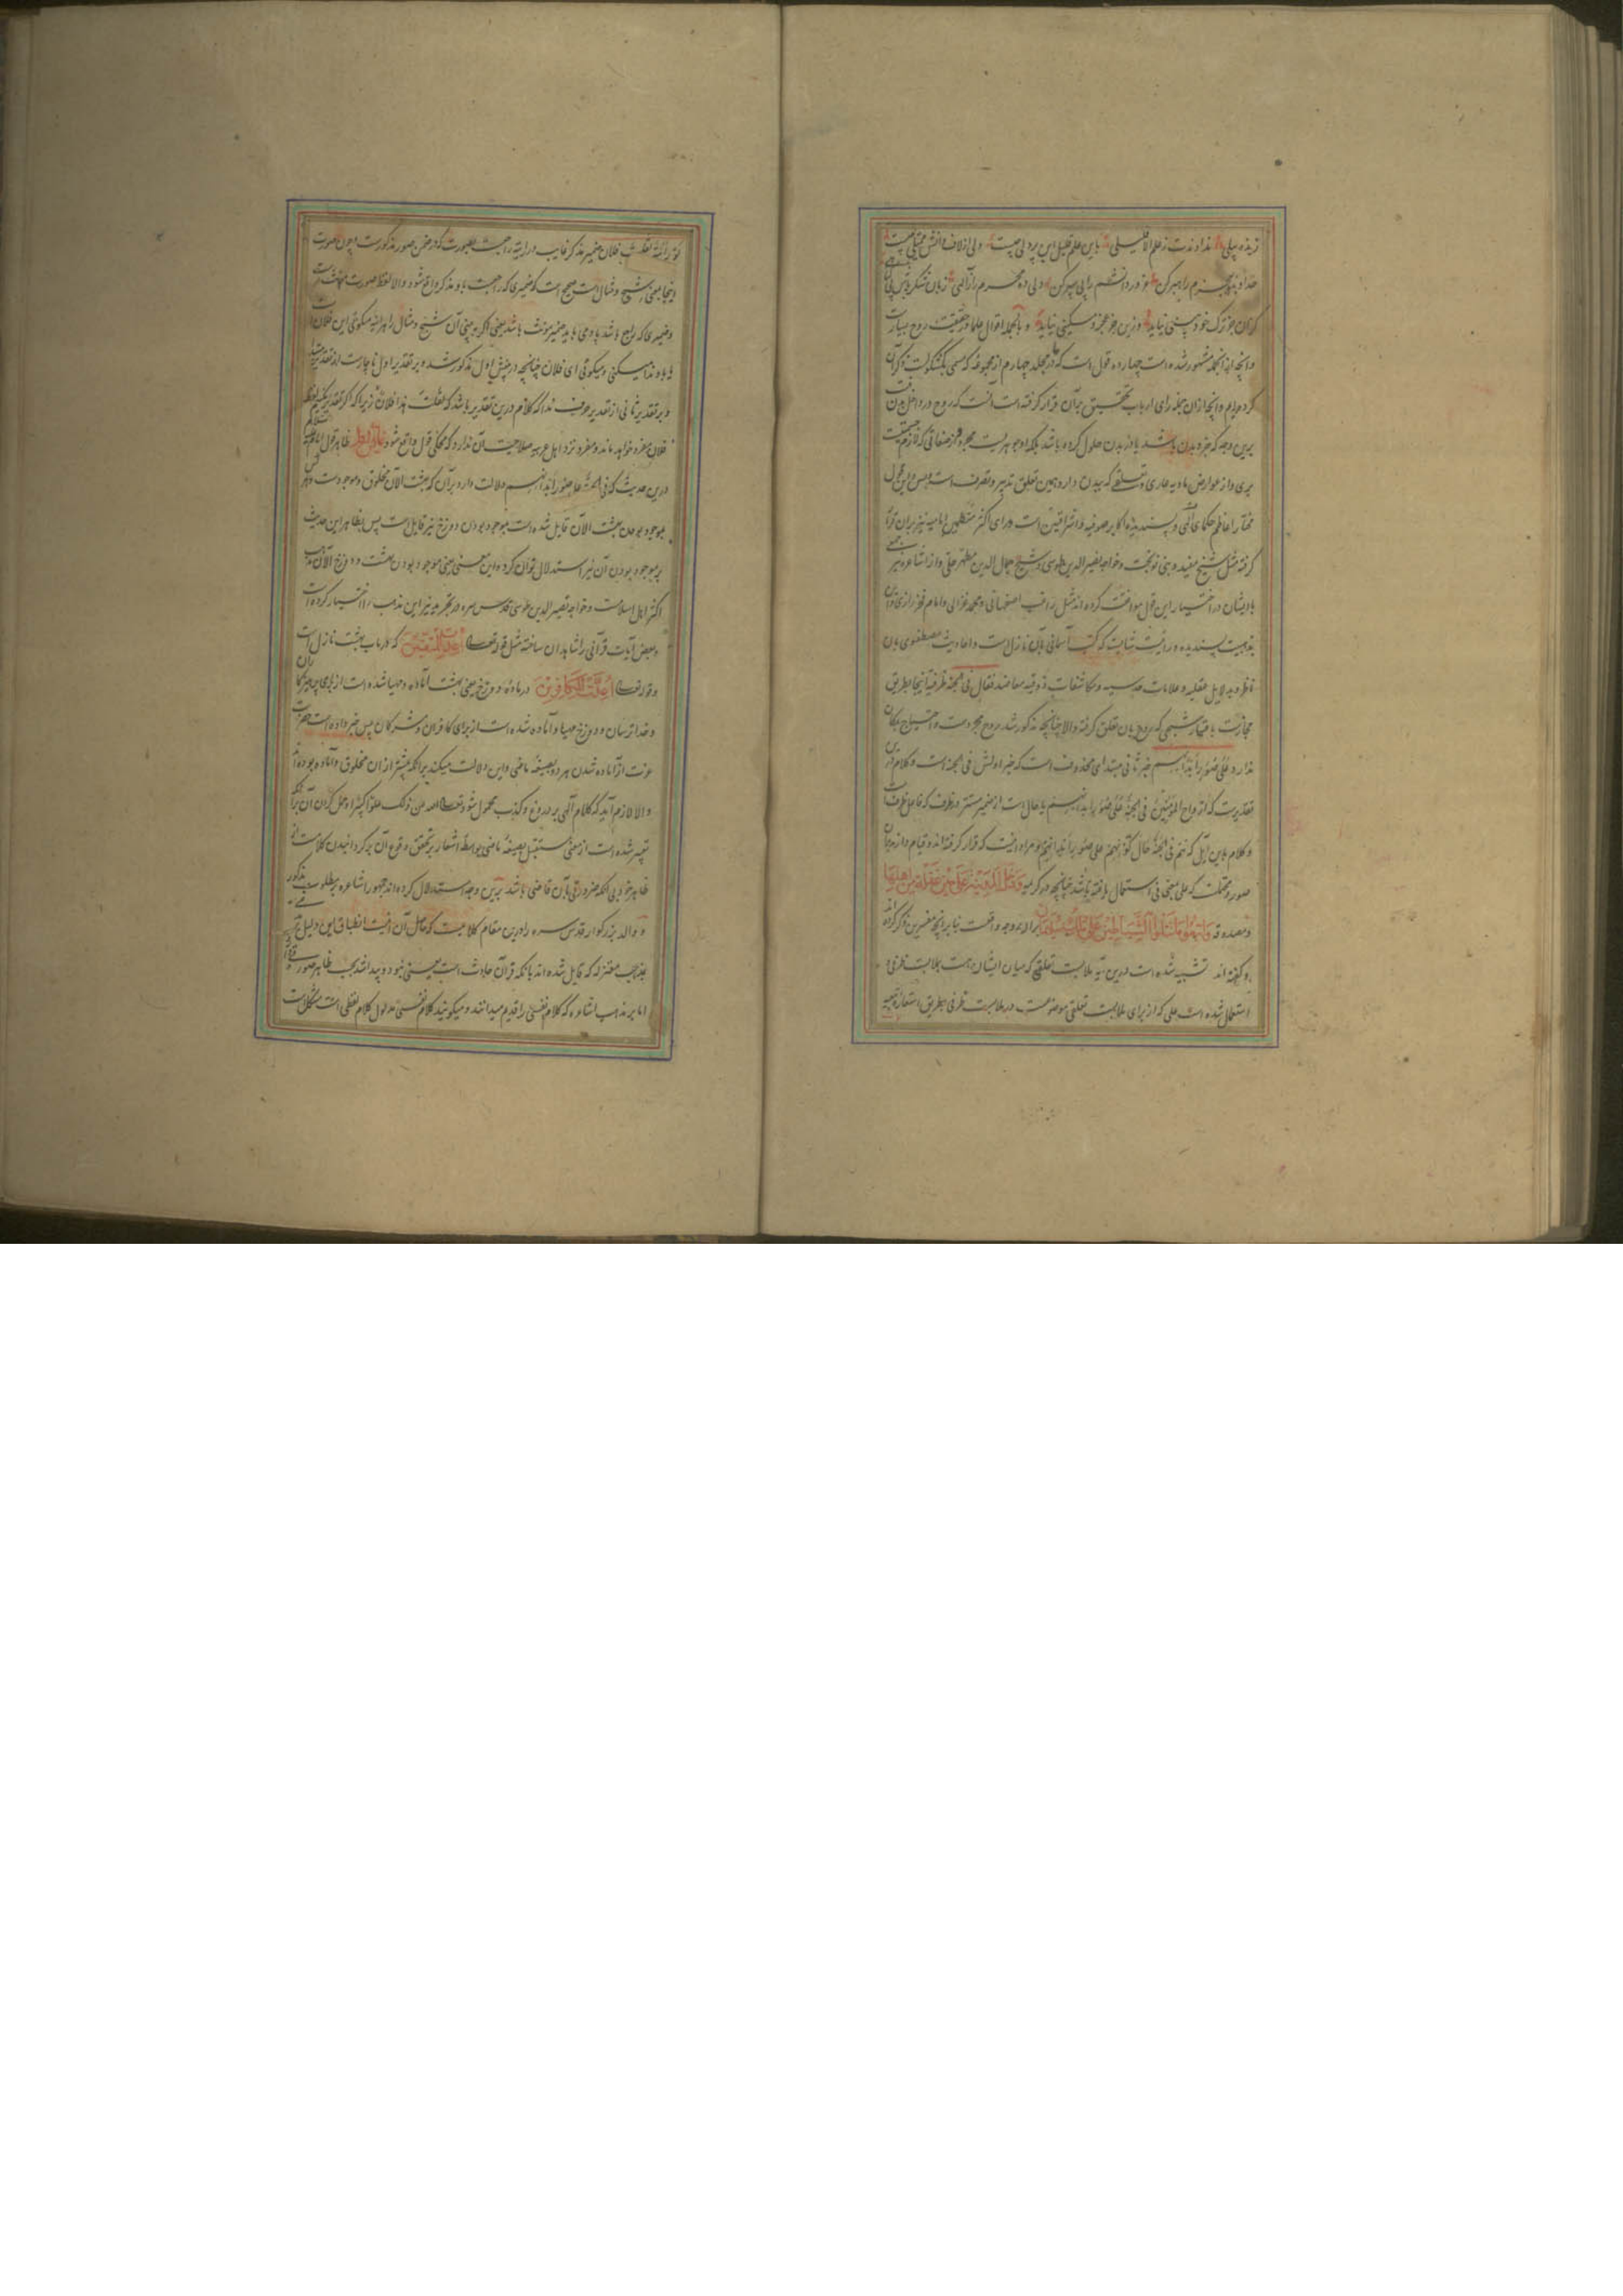 خداوندت ز علم الا قلیلی باین علم قلیل این پر دلی چیست ولی از لاف دانش
خداوندا بعجزم راهبر کن ولی ده محرم راز
کزان جز ترک خود بینی نیاید وزین جز عجز و مسکینی نیاید و بالجمله اقوال علما در حقیقت روح بسیارست
و آنچه از آنجمله مشهور شده است چهارده قول است که در مجلد چهارم از مجموعه که مسمی بکشکولست ذکر آن
کرده‌ایم و آنچه از آن جمله رای ارباب تحقیق بر آن قرار گرفته است آنست که روح در داخل بدن
برین وجه که جزو بدن باشد یا در بدن حلول کرده باشد بلکه او جوهریست مجرد و از صفاتی که لازم جسمیت
بری و از عوارض مادیه عاری و تعلقی که ببدن دارد همین تعلق تدبیر و تصرف است و بس و این قول
مختار اعاظم حکمای الهی و پسندیده اکابر صوفیه و اشراقیین است و رای اکثر متکلمین امامیه نیز بر آن قرار
گرفته مثل شیخ مفید و بنی نوبخت و خواجه نصیر الدین طوسی و شیخ جمال الدین مطهر حلی و از اشاعره نیز جمعی
بایشان در اختیار این قول موافقت کرده‌اند مثل راغب اصفهانی و محمد غزالی و امام فخر رازی و این
مذهبیست پسندیده و رائیست که کتب آسمانی بآن نازل است و احادیث مصطفوی بدان
ناطق و بدلایل عقلیه و علامات حدسیه و مکاشفات ذوقیه معاضد فقال فی الجنة ظرفیة اینجا بطریق
مجازیست باعتبار شبحی که روح بآن تعلق گرفته و الا چنانچه مذکور شد روح مجردست و احتیاج بمکان
ندارد علی صور ابدانهم خبر ثانی مبتدای محذوف است که خبر اولش فی الجنة است و کلام در
تقدیرست که ارواح المؤمنین فی الجنة علی صور ابدانهم یا حال است از ضمیر مستتر در ظرف که فاعل ظرفست
و کلام باین که هم فی الجنة حال کونهم علی صور ابدانهم و مراد اینست که قرار گرفته‌اند و قیام دارند بآن
صور و محتملست که علی بمعنی فی استعمال یافته باشد چنانچه در کریمه وَدَخَلَ الْمَدِينَةَ عَلَى حِينِ غَفْلَةٍ مِنْ أَهْلِهَا
وَاتَّبَعُوا مَا تَتْلُوا الشَّيَاطِينُ عَلَى مُلْكِ سُلَيْمَانَ برین وجه واقعست بنابر آنچه مفسرین ذکر کرده‌اند
و گفته‌اند تشبیه شده است درین آیه ملابست تعلقی که میان ایشان هست بملابست ظرفی و
استعمال شده است علی که از برای ملابست تعلقی موضوعست در ملابست ظرفی بطریق استعاره تبعیه
فلان ضمیر مذکر غایب در رایته راجعست بصورت که در ضمن صور مذکورست و چون صورت
اینجا بمعنی شبح و مثال است صحیح است که ضمیری که راجعست باو مذکر واقع شود و الا لفظ صورت مؤنث است
و ضمیری که راجع باشد باو می باید ضمیر مؤنث باشد یعنی اگر ببینی آن شبح و مثال را هر آینه میگوئی این فلان است
یا باو ندا میکنی و میگوئی ای فلان چنانچه در پیش اول مذکور شد و بر تقدیر اول ناچارست از تقدیر مبتدا
و بر تقدیر ثانی از تقدیر حرف ندا که کلام درین تقدیر باشد که لقلت هذا فلان زیرا که اگر تقدیر نکنیم لفظ
فلان مفرد خواهد ماند و مفرد نزد اهل عربیه صلاحیت آن ندارد که محکی قول واقع شود ظاهر قول امام علیه السلام
درین حدیث که فی الجنة علی صور ابدانهم دلالت دارد بر آن که بهشت الآن مخلوق و موجودست و هر کس
بموجود بودن بهشت الآن قایل شده است بموجود بودن دوزخ نیز قایل است پس بظاهر این حدیث
بر موجود بودن آن نیز استدلال توان کرد و این معنی یعنی موجود بودن بهشت و دوزخ الآن مذهب
اکثر اهل اسلامست و خواجه نصیر الدین طوسی قدس سره در تجرید نیز این مذهب را اختیار کرده است
و بعض آیات قرآنی را شاهد آن ساخته مثل قوله تعالی أُعِدَّتْ لِلْمُتَّقِينَ که در باب بهشت نازل است
و قوله تعالی أُعِدَّتْ لِلْكَافِرِينَ در ماده دوزخ یعنی بهشت آماده و مهیا شده است از برای پرهیزکاران
و خداترسان و دوزخ مهیا و آماده شده است از برای کافران و مشرکان پس خبر داده است حضرت
عزت از آماده شدن هر دو بصیغه ماضی و این دلالت میکند بر آنکه پیشتر از آن مخلوق و آماده بوده‌اند
و الا لازم آید که کلام الهی بر دروغ و کذب محمول شود تعالی الله عن ذلک علوا کبیرا و حمل کردن آن بر آنکه
تعبیر شده است از معنی مستقبل بصیغه ماضی بواسطه اشعار بر تحقق وقوع آن برگردانیدن کلامست از
ظاهر خود بی آنکه ضرورتی بآن قاضی باشد برین وجه استدلال کرده‌اند جمهور اشاعره بر مطلوب مذکور
و والد بزرگوار قدس سره را درین مقام کلامیست که حاصل آن اینست انطباق این دلیل
بمذهب معتزله که قایل شده‌اند بآنکه قرآن حادث است یعنی نبود و پیدا شد بحسب ظاهر
اما بر مذهب اشاعره که کلام نفسی را قدیم میدانند و میگویند کلام نفسی مدلول کلام لفظی است مشکلست